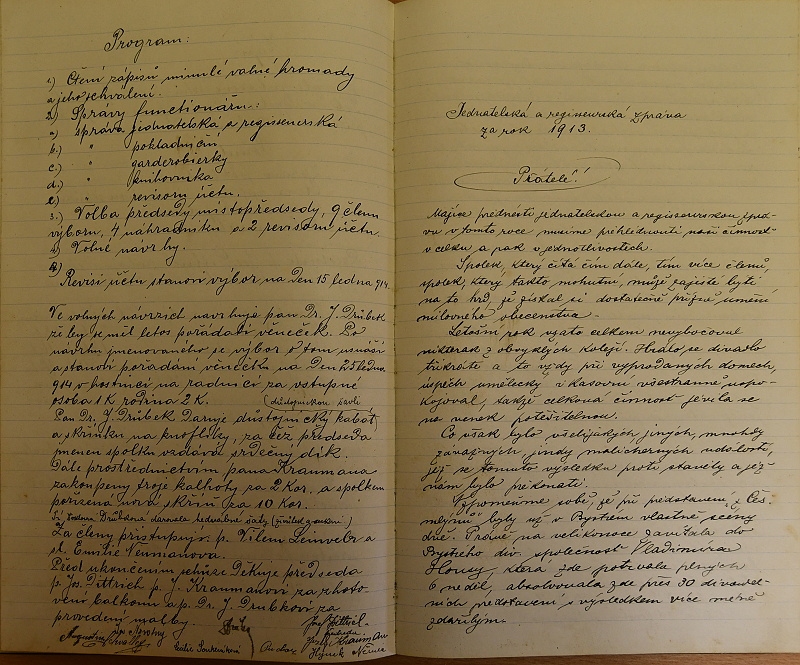 Program:
1.) Čtení zápisů minulé valné hromady
a jeho schválení.
2.) Správy functionářů:
a) správa jednatelská a regiseurská
b.) " pokladniční
c.) " garderobierky
d.) " knihovníka
e.) " revisorů účtů.
3.) Volba předsedy, místopředsedy, 9 členů
výboru, 4 náhradníků a 2 revisorů účtů.
4.) Volné návrhy.
Revisi účtů stanoví výbor na den 15 ledna 914.
Ve volných návrzích navrhuje pan Dr. J. Drübek
že by se měl letos pořádati věneček. Po
návrhu jmenovaného se výbor o tom usnáší
a stanoví pořádání věnečku na den 25 ledna
914 v hostinci na radnici za vstupné
osoba 1 K rodina 2 K.
Pan Dr. J. Drübek daruje důstojnický kabát
a skřínku na knoflíky, za čež předseda
jménem spolku vzdává srdečný dík.
Dále prostřednictvím pana Kraumana
zakoupeny troje kalhoty za 2 Kor. a spolkem
pořízena nová skříň za 10 Kor.
Drübkova darovala hedvábné šaty
Za členy přistupují: p. Vilém
sl. Emilie Neumanova.
Před ukončením schůze děkuje předseda
p. Jos. Dittrich p. J. Kraumanovi za zhoto-
vení balkonu a p. Dr. J. Drübkovi za
provedení malby.
Augustin Jos. Novotný
Josef Dittrich
předseda
Josef Krauman
Hynek Němec
Jednatelská a regiseurská zpráva
za rok 1913.
Přátelé!
Maje přednésti jednatelskou a regiseurskou zprá-
vu v tomto roce musíme přehlédnouti naši činnost
v celku a pak v jednotlivostech.
Spolek, který čítá čím dále, tím více členů,
spolek, který takto mohutní, může zajisté býti
na to hrd, že získal si dostatečně přízně umění
milovného obecenstva.
Letošní rok vsato celkem nevybočoval
nikterak z obvyklých kolejí. Hrálo se divadlo
třikráte a to vždy při vyprodaných domech,
úspěch umělecký i kasovní všestranně uspo-
kojoval, takže celková činnost jevila se
na venek potěšitelnou.
Co však bylo všelijakých jiných, mnohdy
závažných, jindy malicherných událostí,
jež se tomuto výsledku proti stavěly a jež
nám bylo překonati.
Vzpomeňme sobě, že při představení „Čes.
mlýnů" byly už v Bystrém vlastně scény
dvě. Právě na velikonoce zavítala do
Bystrého div. společnost Vladimíra
Housy, která zde potrvala plných
6 neděl, absolvovala zde přes 30 divadel-
ních představení s výsledkem více méně
zdařilým.